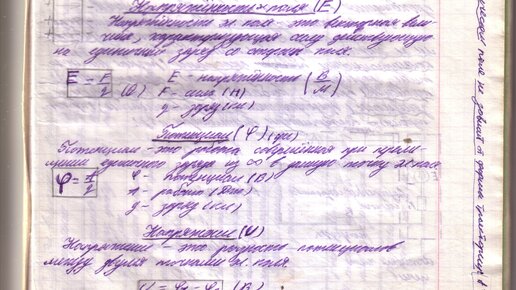 Напряжённость эл поля (Е)
Напряжённость эл. поля - это векторная вели-
чина, характеризующая силу действующую
на единичный заряд со стороны поля.
E = F/q (1) E - напряжённость (В/М)
F - сила (Н)
q - заряд (Кл)
Потенциал (φ) (фи)
Потенциал - это работа совершённая при
единичного заряда из ∞ в данную точку эл поля
φ = A/q φ - потенциал (В)
A - работа (Дж)
q - заряд (Кл)
Напряжение (U)
Напряжение - это разность потенциалов
между двумя точками эл. поля.
U = φ₁ - φ₂ (В)
поля не зависит от формы траектории в